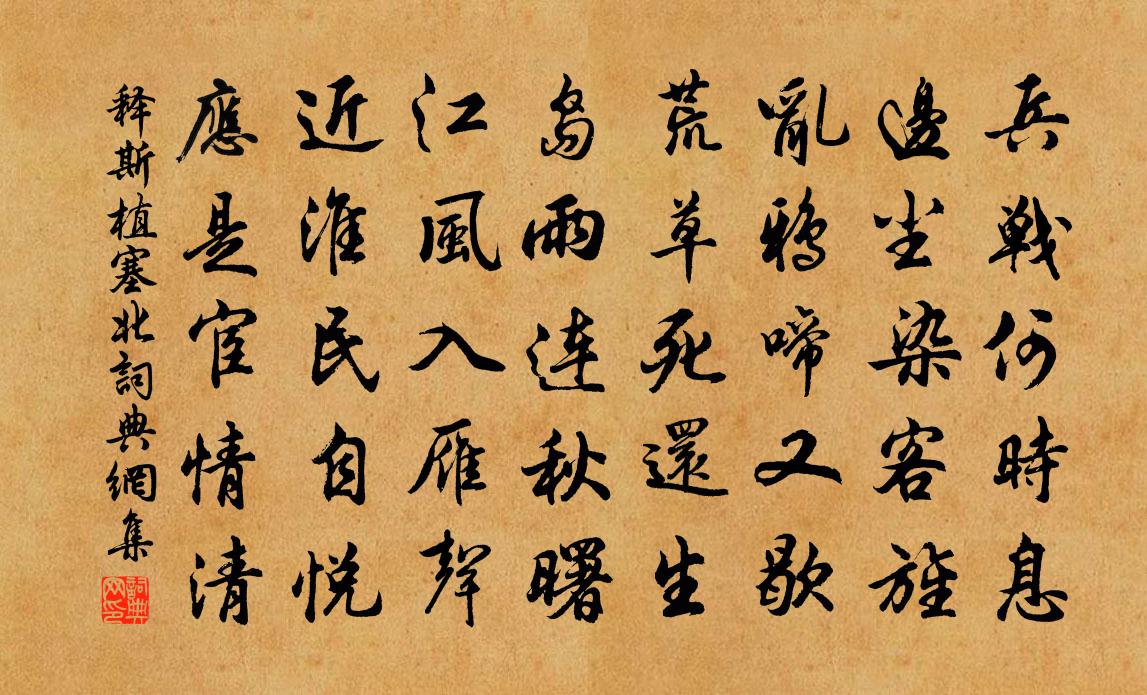 兵戦何時息
邊尘染客旌
亂鴉啼又歇
荒草死還生
島雨連秋曙
江風入雁聲
近淮民自悦
應是宦情清
释斯植塞北詞典網集
詞典网印